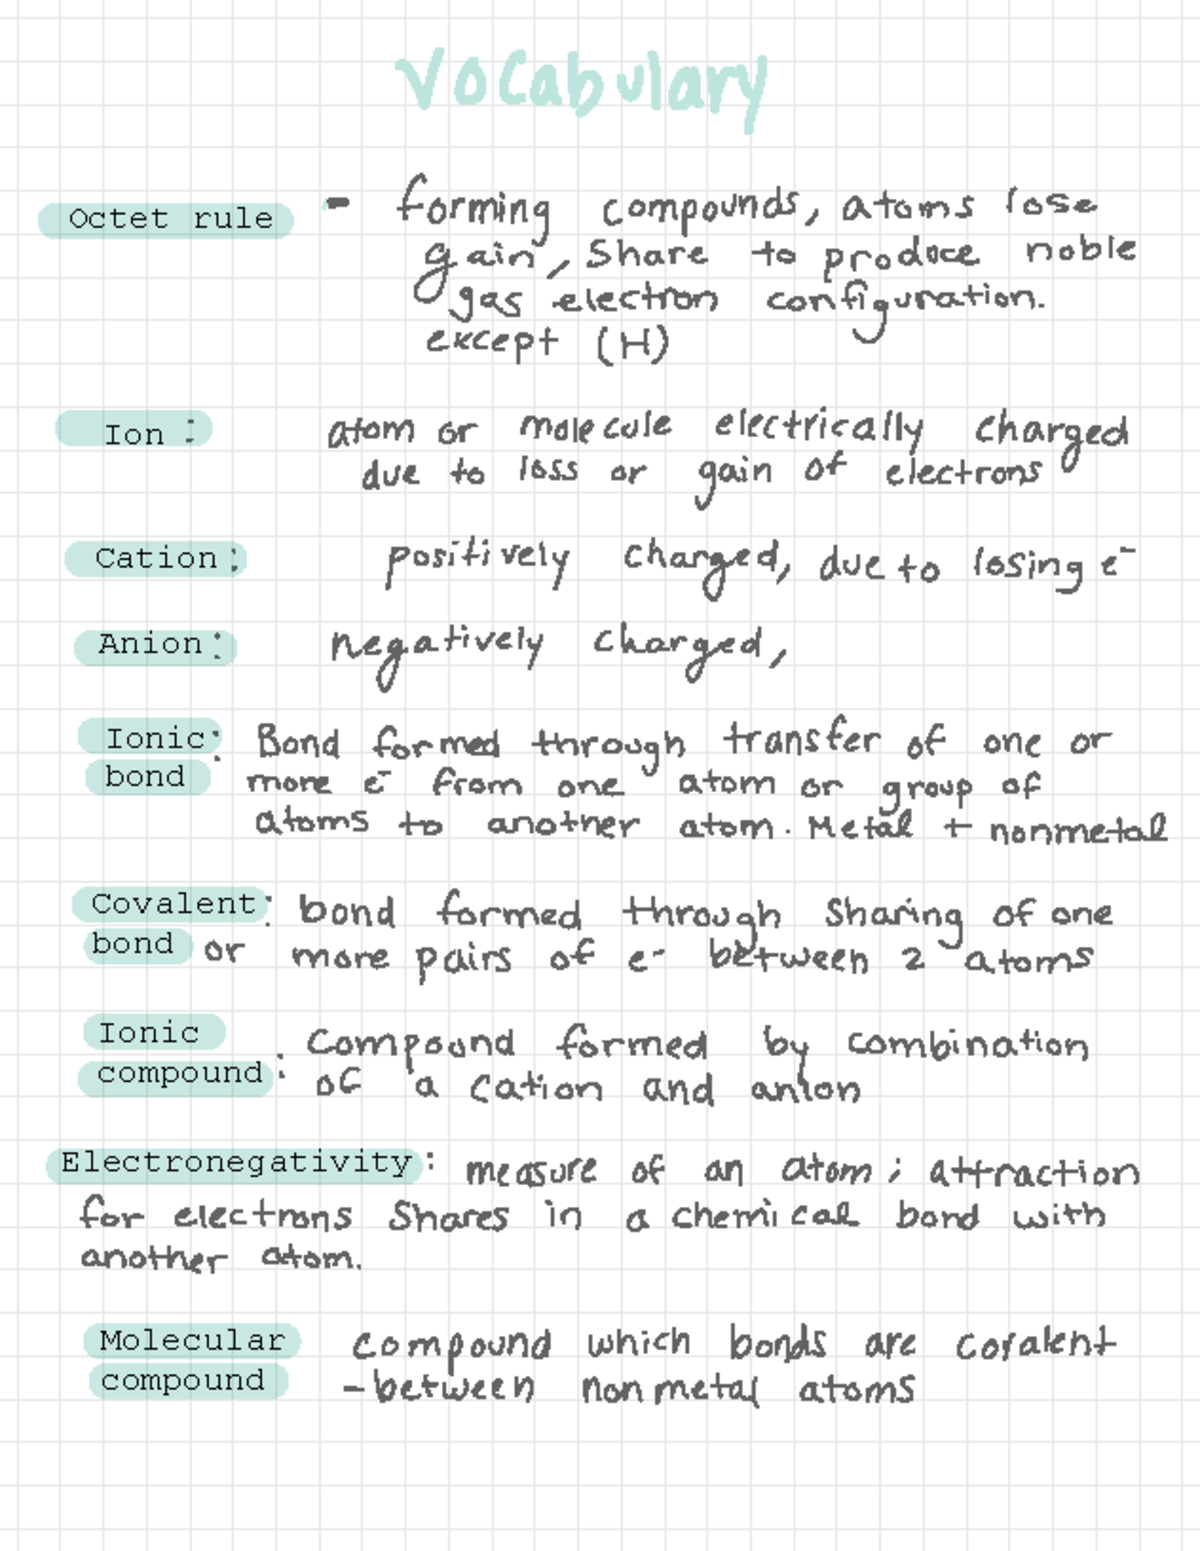 Vocabulary
Octet rule - forming compounds, atoms lose
gain, Share to produce noble
gas electron configuration.
except (H)
Ion : atom or molecule electrically charged
due to loss or gain of electrons
Cation: positively charged, due to losing e⁻
Anion: negatively charged,
Ionic : Bond formed through transfer of one or
bond more e⁻ from one atom or group of
atoms to another atom. Metal + nonmetal
Covalent : bond formed through Sharing of one
bond or more pairs of e⁻ between 2 atoms
Ionic Compound formed by combination
compound : of a Cation and anion
Electronegativity : measure of an atom ; attraction
for electrons Shares in a chemical bond with
another atom.
Molecular compound which bonds are covalent
compound - between nonmetal atoms